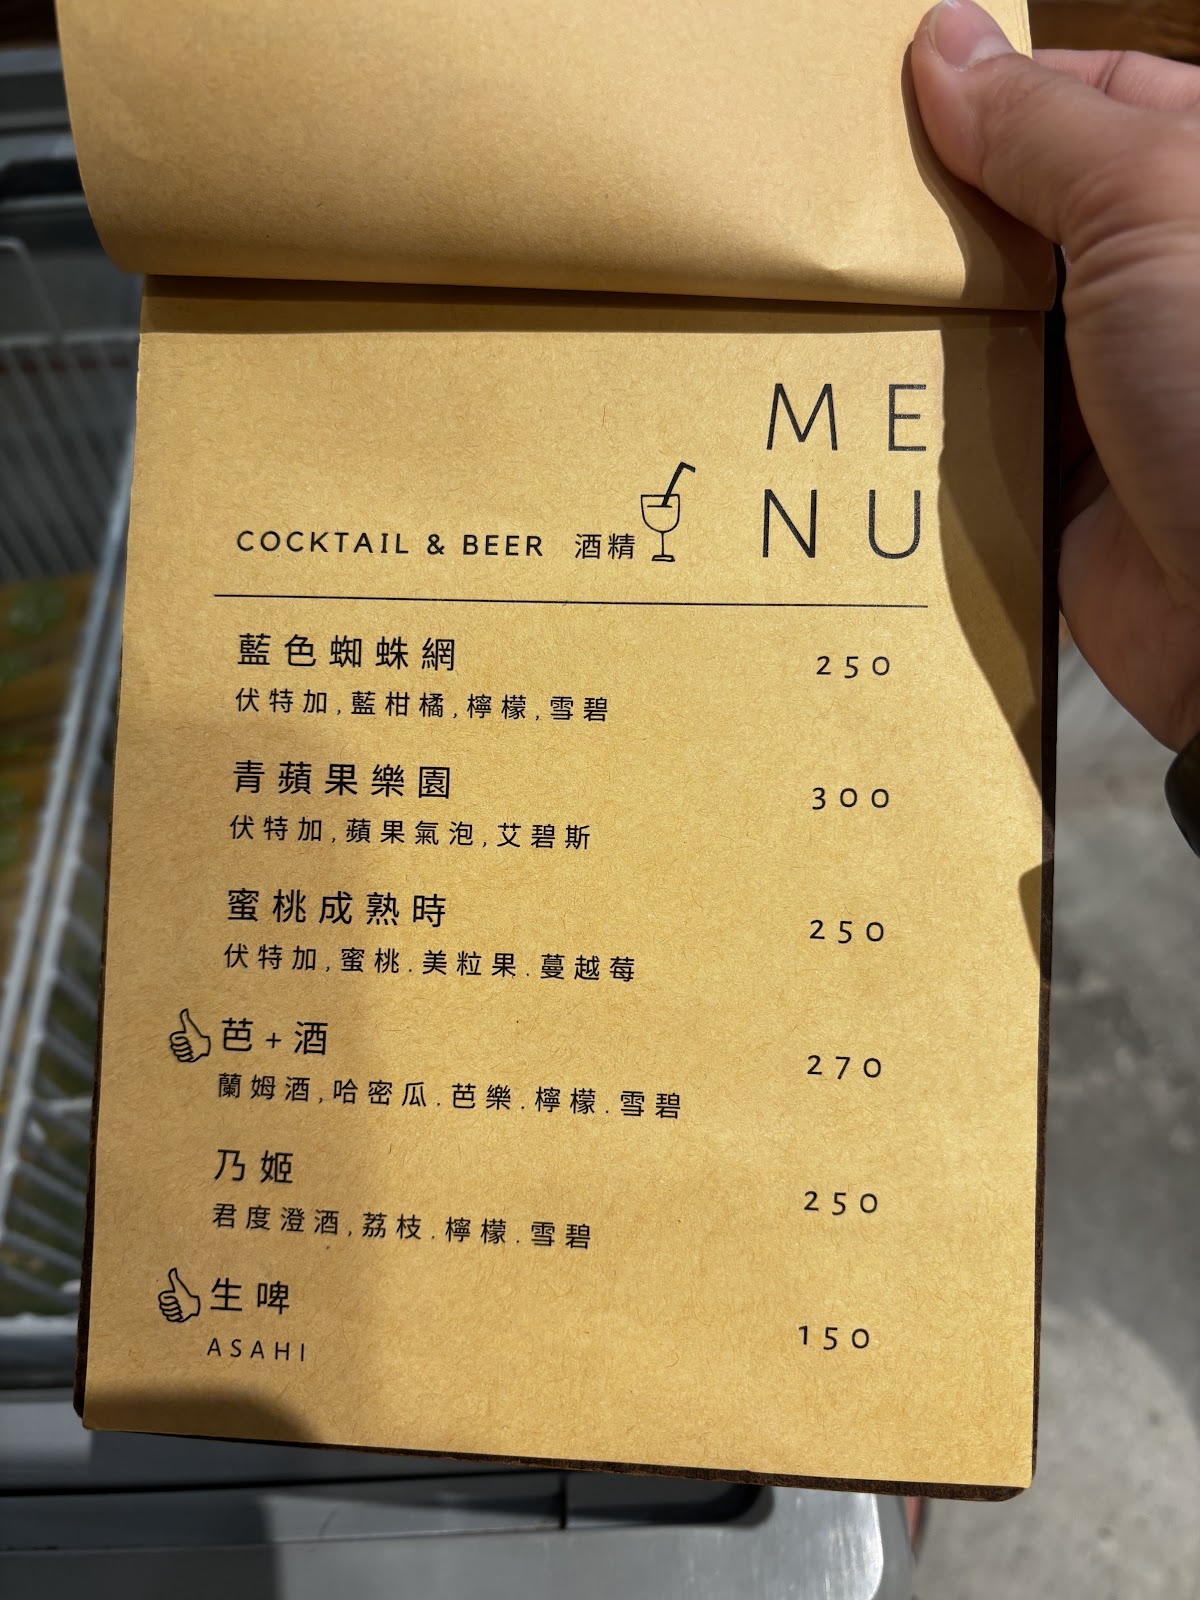 M E
N U
COCKTAIL & BEER 酒精
藍色蜘蛛網
250
伏特加,藍柑橘,檸檬,雪碧
青蘋果樂園
300
伏特加,蘋果氣泡,艾碧斯
蜜桃成熟時
250
伏特加,蜜桃.美粒果.蔓越莓
芭+酒
270
蘭姆酒,哈密瓜.芭樂.檸檬.雪碧
乃姬
250
君度澄酒,荔枝.檸檬.雪碧
生啤
150
ASAHI